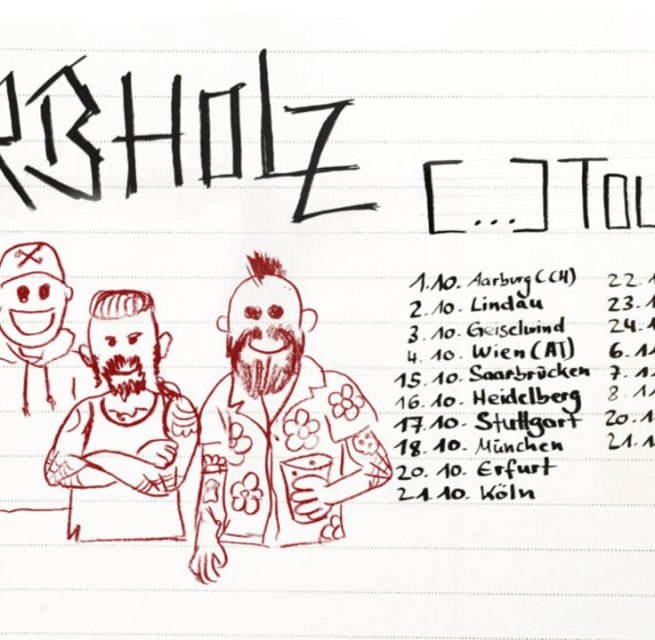 RBHOLZ
[...] TOU
1.10. Aarburg (CH)
2.10. Lindau
3.10. Geiselwind
4.10. Wien (AT)
15.10. Saarbrücken
16.10. Heidelberg
17.10. Stuttgart
18.10. München
20.10. Erfurt
21.10. Köln
22.1
23.1
24.1
6.11
7.1
8.1
20.1
21.1